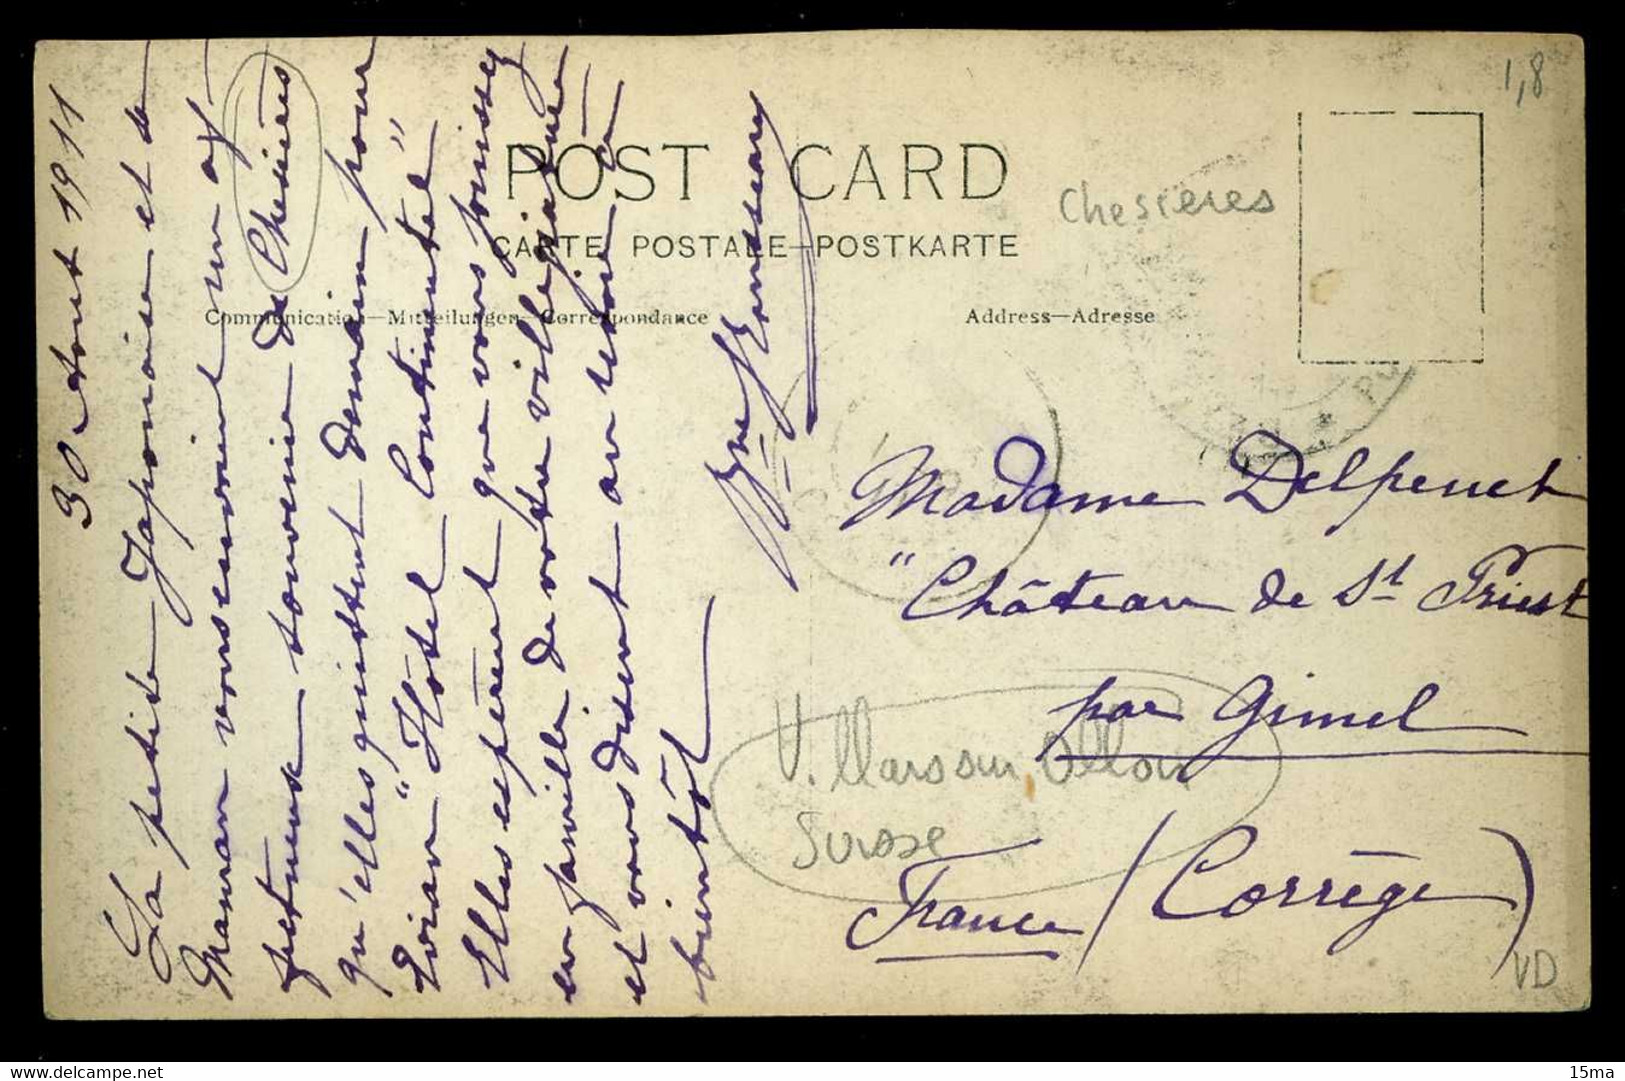 30 Aout 1911
La petite Japonaise et sa
Maman vous envoient un af-
fectueux souvenir de Chesières
qu'elles quittent demain pour
Evian "Hôtel Continental"
Elles espèrent que vous jouissez
en famille de votre villégiature
et vous disent au revoir à
bientôt
POST CARD
CARTE POSTALE—POSTKARTE
Communication—Mitteilungen—Correspondance
Address—Adresse
1,8
Chesières
Madame Delpeuch
"Château de St Priest
par Gimel
Villars sur Ollon
Suisse
France (Corrège)
VD
15ma